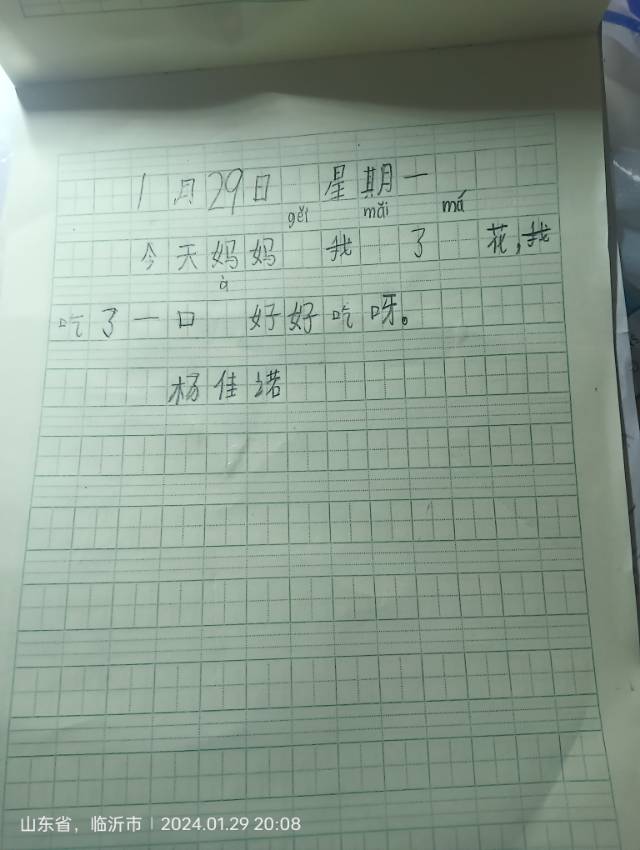 1月29日 星期一
今天妈妈 gěi 我 mǎi 了 má 花,我
吃了一口 à 好好吃呀。
杨佳诺
山东省，临沂市 | 2024.01.29 20:08